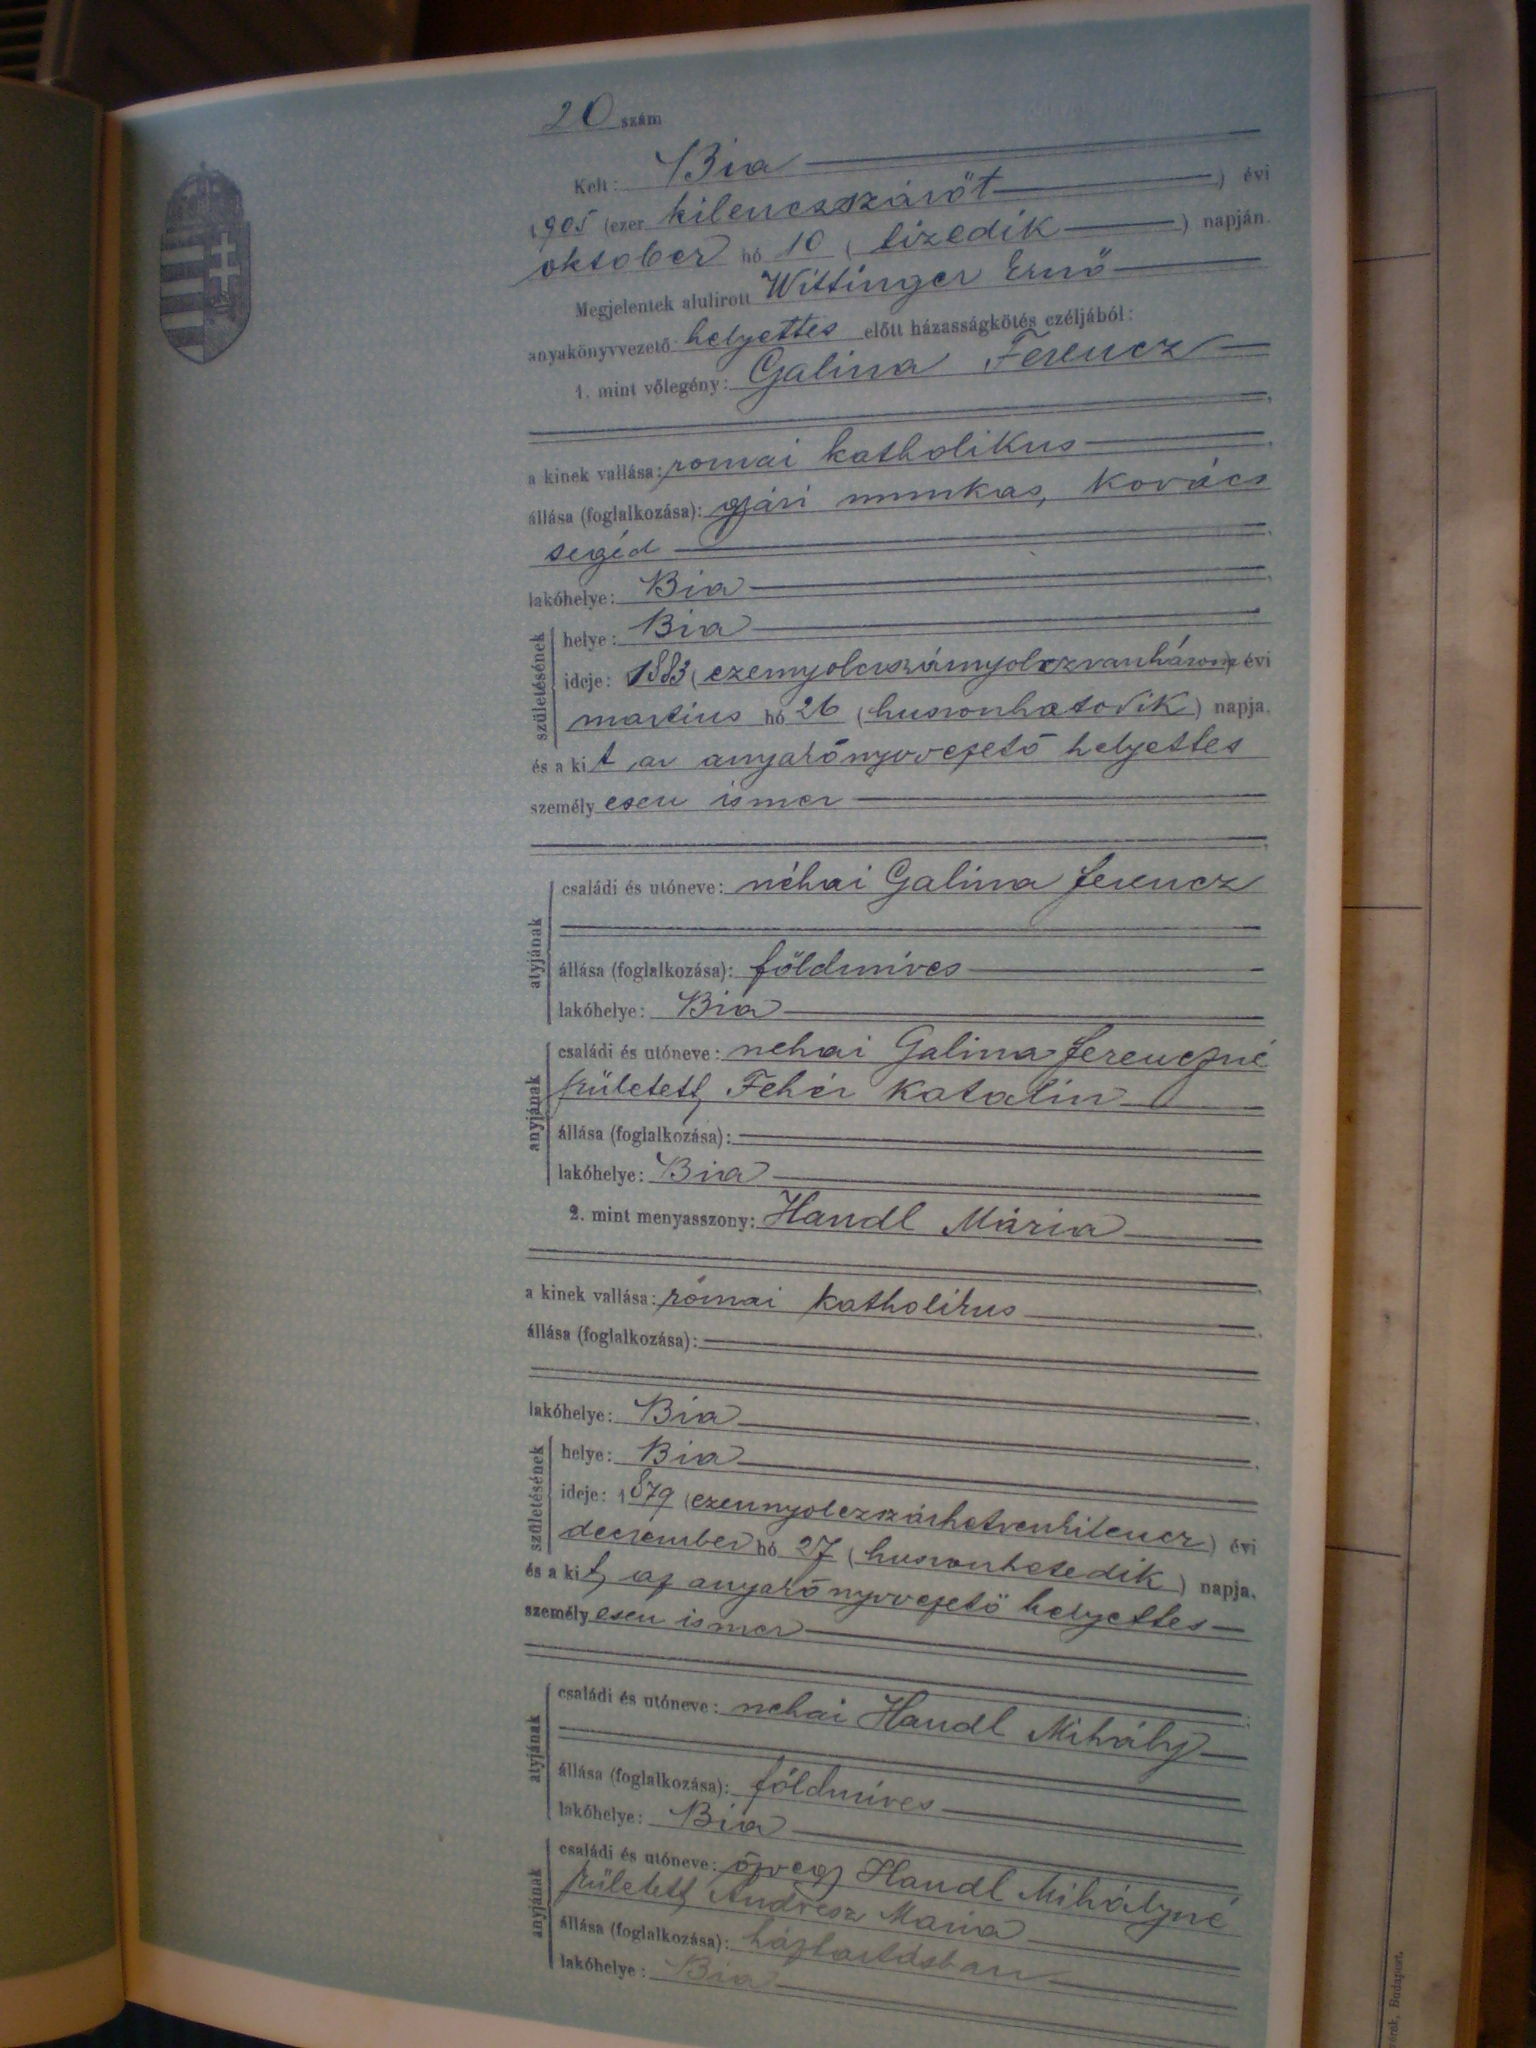 20 szám
Kelt: Bia
1905 (ezer kilenczszázöt) évi
oktober hó 10 (tizedik) napján.
Megjelentek alulirott Wittinger Ernő
anyakönyvvezető helyettes előtt házasságkötés czéljából:
1. mint vőlegény: Galina Ferencz
a kinek vallása: romai katholikus
állása (foglalkozása): gyári munkas, Kovács
segéd
lakóhelye: Bia
születésének
helye: Bia
ideje: 1883 (ezernyolczszáznyolczvanhárom) évi
martius hó 26 (huszonhatodik) napja.
és a kit az anyakönyvvezető helyettes
személyesen ismer
atyjának
családi és utóneve: néhai Galina Ferencz
állása (foglalkozása): földmíves
lakóhelye: Bia
anyjának
családi és utóneve: nehai Galina Ferenczné
született Fehér Katalin
állása (foglalkozása):
lakóhelye: Bia
2. mint menyasszony: Handl Mária
a kinek vallása: római katholikus
állása (foglalkozása):
lakóhelye: Bia
születésének
helye: Bia
ideje: 1879 (ezernyolczszázhetvenkilencz) évi
deczember hó 27 (huszonhetedik) napja.
és a kit az anyakönyvvezető helyettes
személyesen ismer
atyjának
családi és utóneve: nehai Handl Mihály
állása (foglalkozása): földmíves
lakóhelye: Bia
anyjának
családi és utóneve: özvegy Handl Mihályné
született Andresz Maria
állása (foglalkozása): háztartásban
lakóhelye: Bia
Budapest.